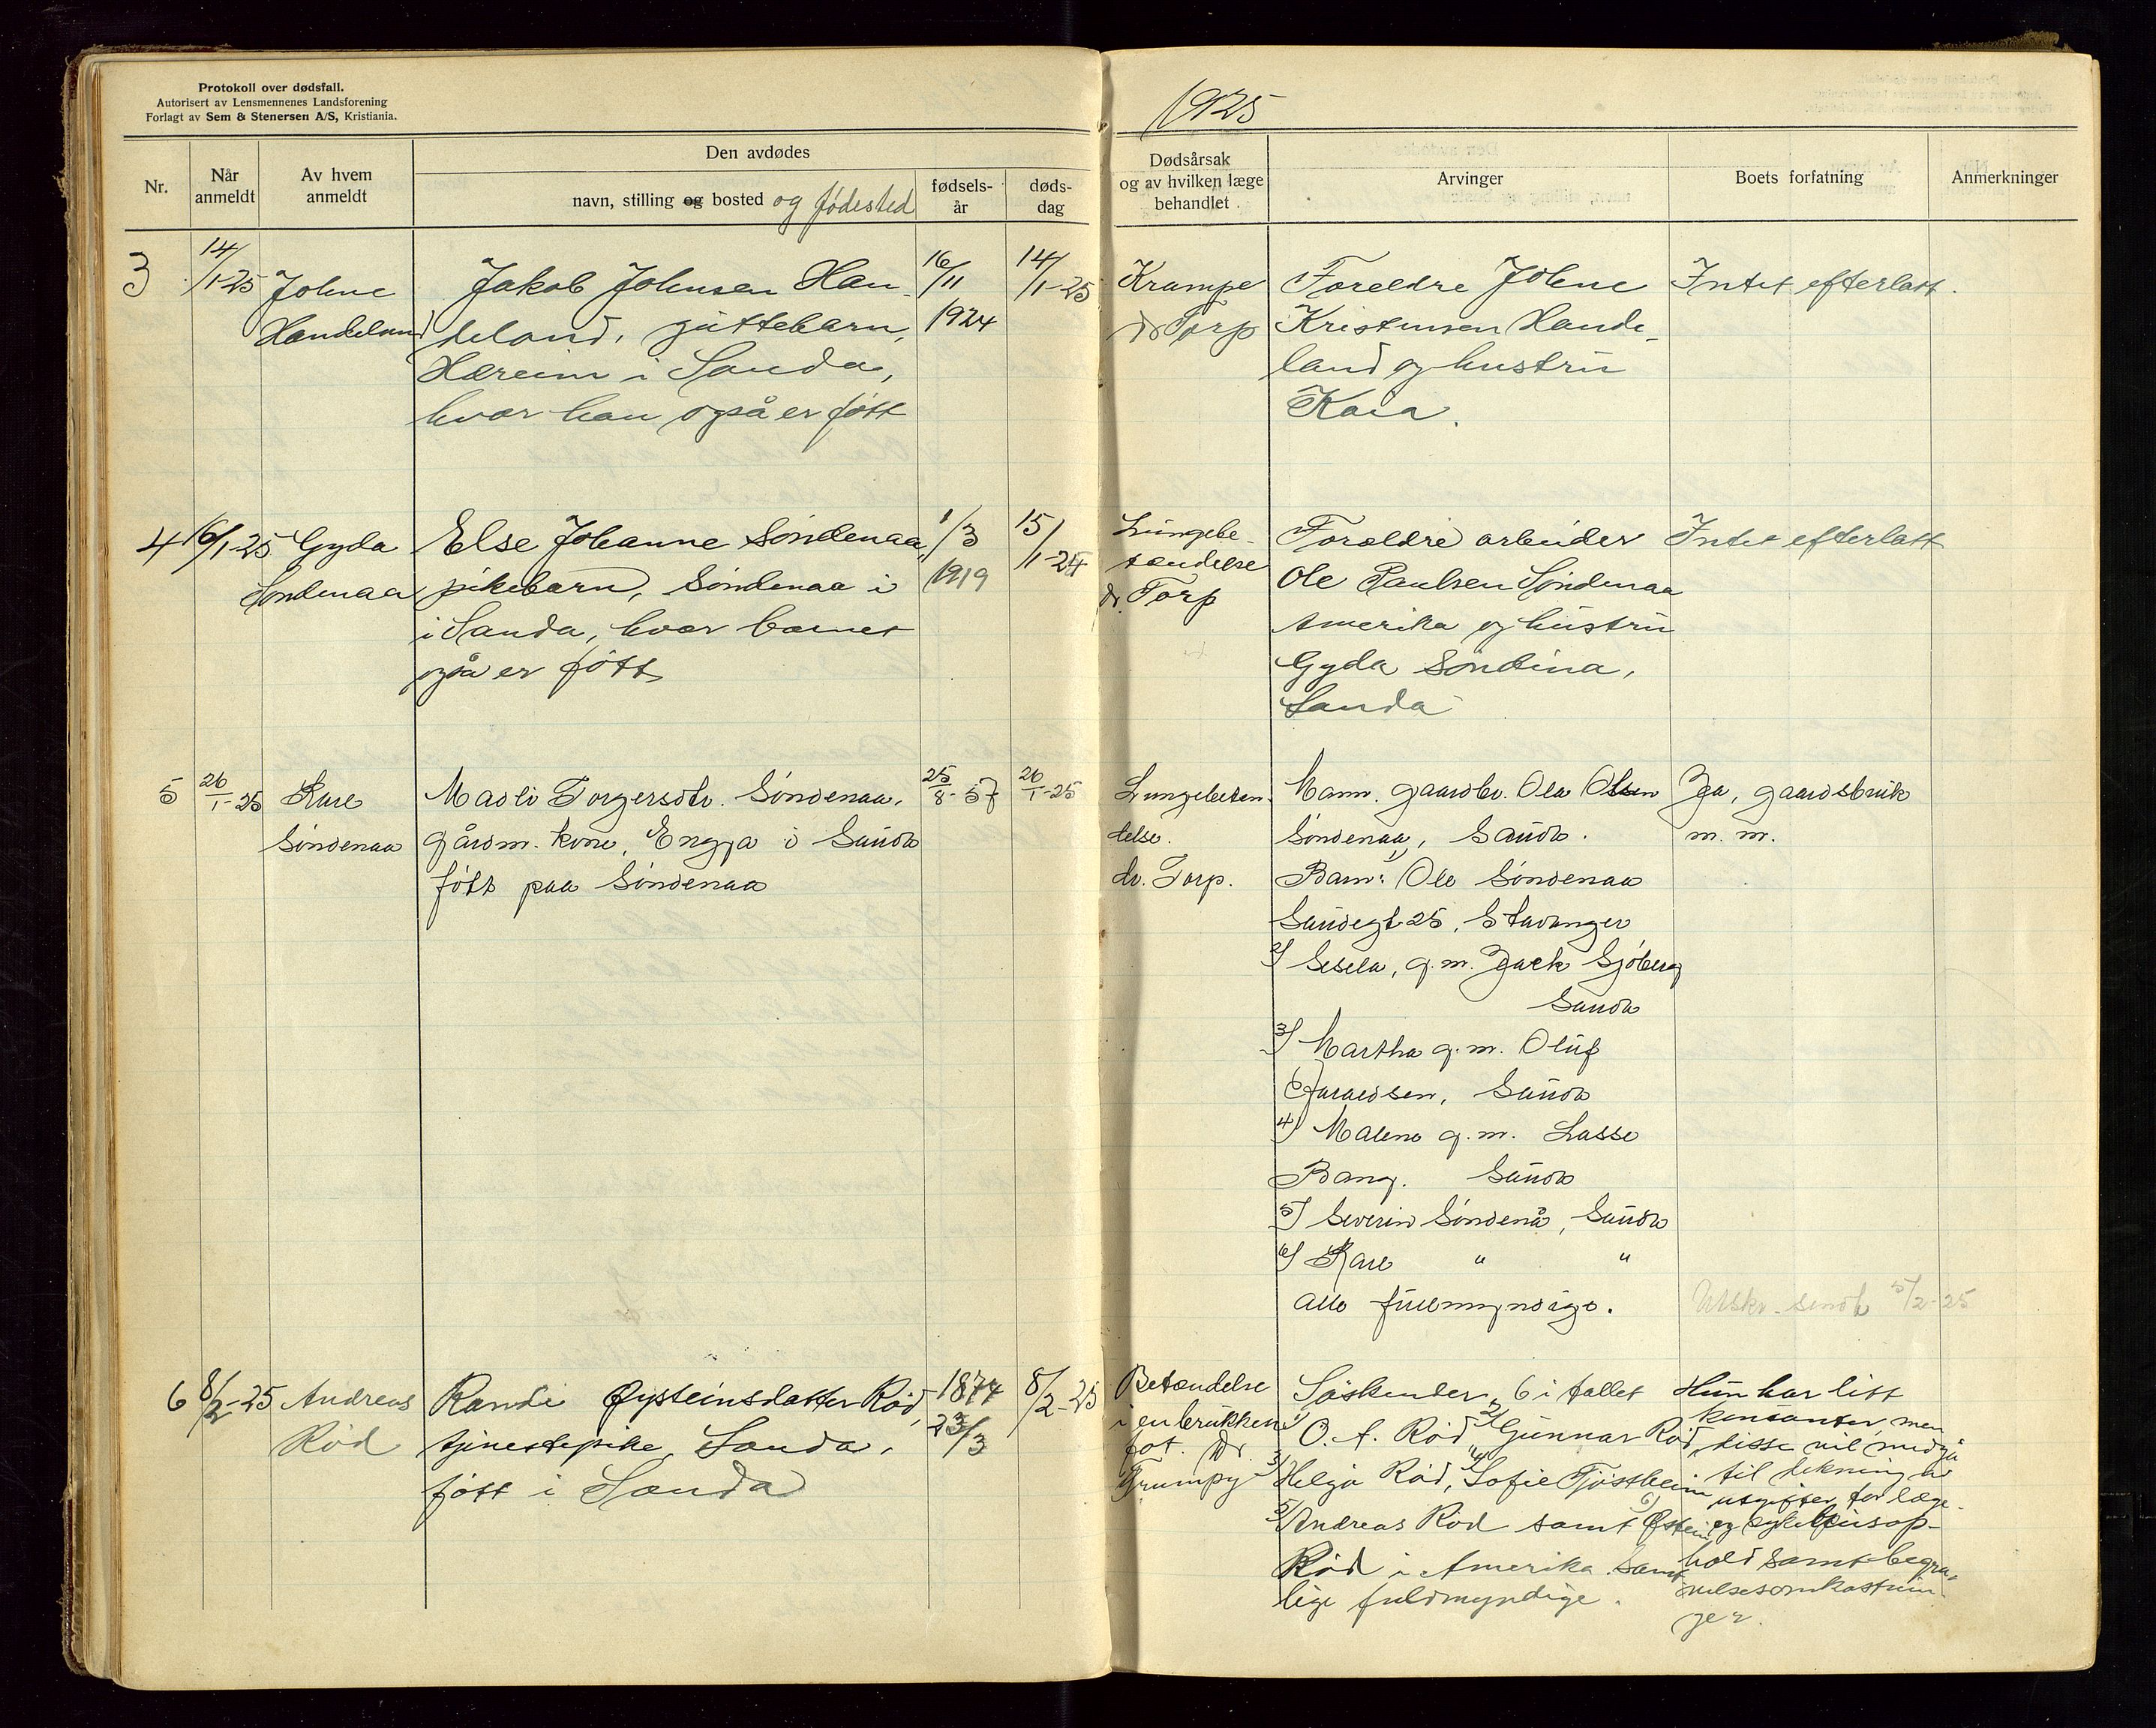 Protokoll over dødsfall.
Autorisert av Lensmennenes Landsforening
Forlagt av Sem & Stenersen A/S, Kristiania.
1925
Nr.
Når anmeldt
Av hvem anmeldt
Den avdødes
navn, stilling og bosted og fødested
fødsels-
år
døds-
dag
Dødsårsak
og av hvilken læge
behandlet
Arvinger
Boets forfatning
Anmerkninger
3
14/1-25
Johne
Handeland
Jakob Johnsen Han-
deland, guttebarn,
Hæreim i Sauda,
hvor han også er født
16/11
1924
14/1-25
Krampe
dr Torp
Foreldre Johne
Kristensen Hande-
land og hustru
Kaia.
Intet efterlatt.
4
16/1-25
Gyda
Søndenaa
Else Johanne Søndenaa,
pikebarn, Søndenaa i
i Sauda, hvor barnet
også er født
1/3
1919
15/1-24
Lungebe-
tændelse
dr. Torp
Forældre arbeider
Ole Paulsen Søndenaa
Amerika og hustru
Gyda Søndena,
Sauda
Intet efterlatt
5
26/1-25
Kase
Søndenaa
Madli Torgersdtr. Søndenaa,
gårdm. kone, Engja i Sauda
født paa Søndenaa
25/8-57
26/1-25
Lungebeten-
delse.
dr. Torp.
Mann. gaardbr. Ola Olsen
Søndenaa, Sauda.
Barn: 1) Ole Søndenaa
Sandegt 25, Stavanger
2) Sesela, g.m. Jack Sjöberg
Sauda
3) Martha g.m. Oluf
Sauda
4) Malene g.m. Lasse
Bang. Sauda
5) Severin Søndenå, Sauda
6) Kase " "
alle fullmyndige.
Ja, gaardsbruk
m. m.
Utskr. sendt 5/2-25
6
8/2-25
Andreas
Rød
Randi Øysteinsdatter Rød,
tjenestepike, Sauda,
født i Sauda
1874
23/3
8/2-25
Betændelse
i en brukken
fot. Dr.
Trumpy
Søskender, 6 i tallet
1) O. A. Rød 2) Gunnar Rød,
3) Helga Rød, 4) Sofie Tjøstheim
5) Andreas Rød samt 6) Østein
Rød i Amerika. Samt-
lige fuldmyndige.
Hun har litt
kontanter, men
disse vil medgå
til dekning av
utgifter for læge-
og sykehusop-
hold samt begra-
velsesomkostnin-
ger.